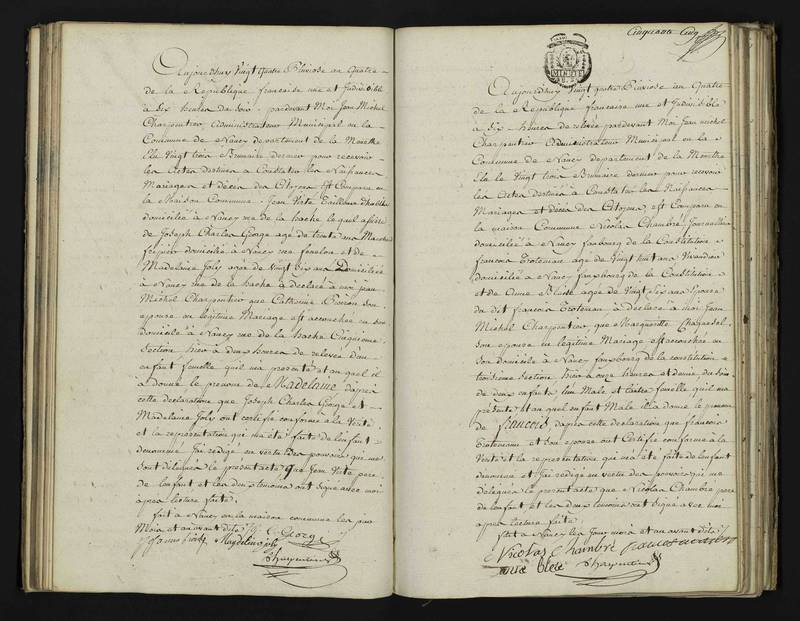 Aujourdhuy Vingt quatre Pluviose an Quatre
de la République françoise une et Indivisible
à Six heures du Soir, pardevant Moi Jean Michel
Charpentier administrateur Municipal en la
Commune de Nancy département de la Meurthe
Elu Vingt trois Brumaire dernier pour recevoir
les Actes destinés à Constater les Naissances
Mariages et décès des Citoyens Est Comparu en
la Maison Commune. Jean Tailleur
domicilié à Nancy rue de la hache lequel assisté
de Joseph Charles George agé de trente ans
domicilié à Nancy rue et de
Madelaine Joly agée de Vingt Six ans Domiciliée
à Nancy rue de la hache a déclaré à moi Jean
Michel Charpentier que Catherine son
epouse en légitime Mariage est accouchée en son
domicile à Nancy rue de la hache Cinquieme
Section hier à deux heures de relevée d'un
enfant femelle quil ma presenté et au quel il
à donné le prenom de Madelaine d'après
cette déclaration que Joseph Charles George et
Madelaine Joly ont certifié conforme à la Verité
et la représentation qui ma été faite de lenfant
denommé Jai redigé en vertu des pouvoirs qui me
sont délégués le present acte que Jean pere
de lenfant et les deux temoins ont signé avec moi
après lecture faite.
fait à Nancy en la maison commune les jour
Mois et an avant dits J. C. George
Magdeleine joly
Charpentier
Cinquante Cinq
Aujourdhuy Vingt quatre Pluviose an Quatre
de la République françoise une et Indivisible
à Six heures de relevée pardevant Moi Jean Michel
Charpentier Administrateur Municipal en la
Commune de Nancy département de la Meurthe
Elu le Vingt trois Brumaire dernier pour recevoir
les Actes destinés à Constater les Naissances
Mariages et décès des Citoyens est Comparu en
la maison Commune Nicolas Chambré
domicilié à Nancy fauxbourg de la Constitution
françois agé de Vingt huit ans
domicilié à Nancy fauxbourg de la Constitution
et de Anne agée de Vingt Six ans Epouse
du dit françois à déclaré à Moi Jean
Michel Charpentier, que Marguerite
Son epouse en legitime Mariage est accouchée en
Son domicile à Nancy fauxbourg de la constitution
troisieme Section hier à onze heures et demie du Soir
de deux enfants lun Male et l'autre femelle quil ma
presenté et au quel enfant Male il à donné le prenom
de françois dapres cette déclaration que françois
et Son epouse ont Certifié conforme à la
Verité et la representation qui ma été faite de lenfant
denommé et Jai redigé en vertu des pouvoirs qui me
délégués le present acte que Nicolas Chambré pere
de lenfant et les deux temoins ont signé avec moi
après lecture faite.
fait à Nancy les Jour, mois et an avant dits
Nicolas Chambré
Charpentier